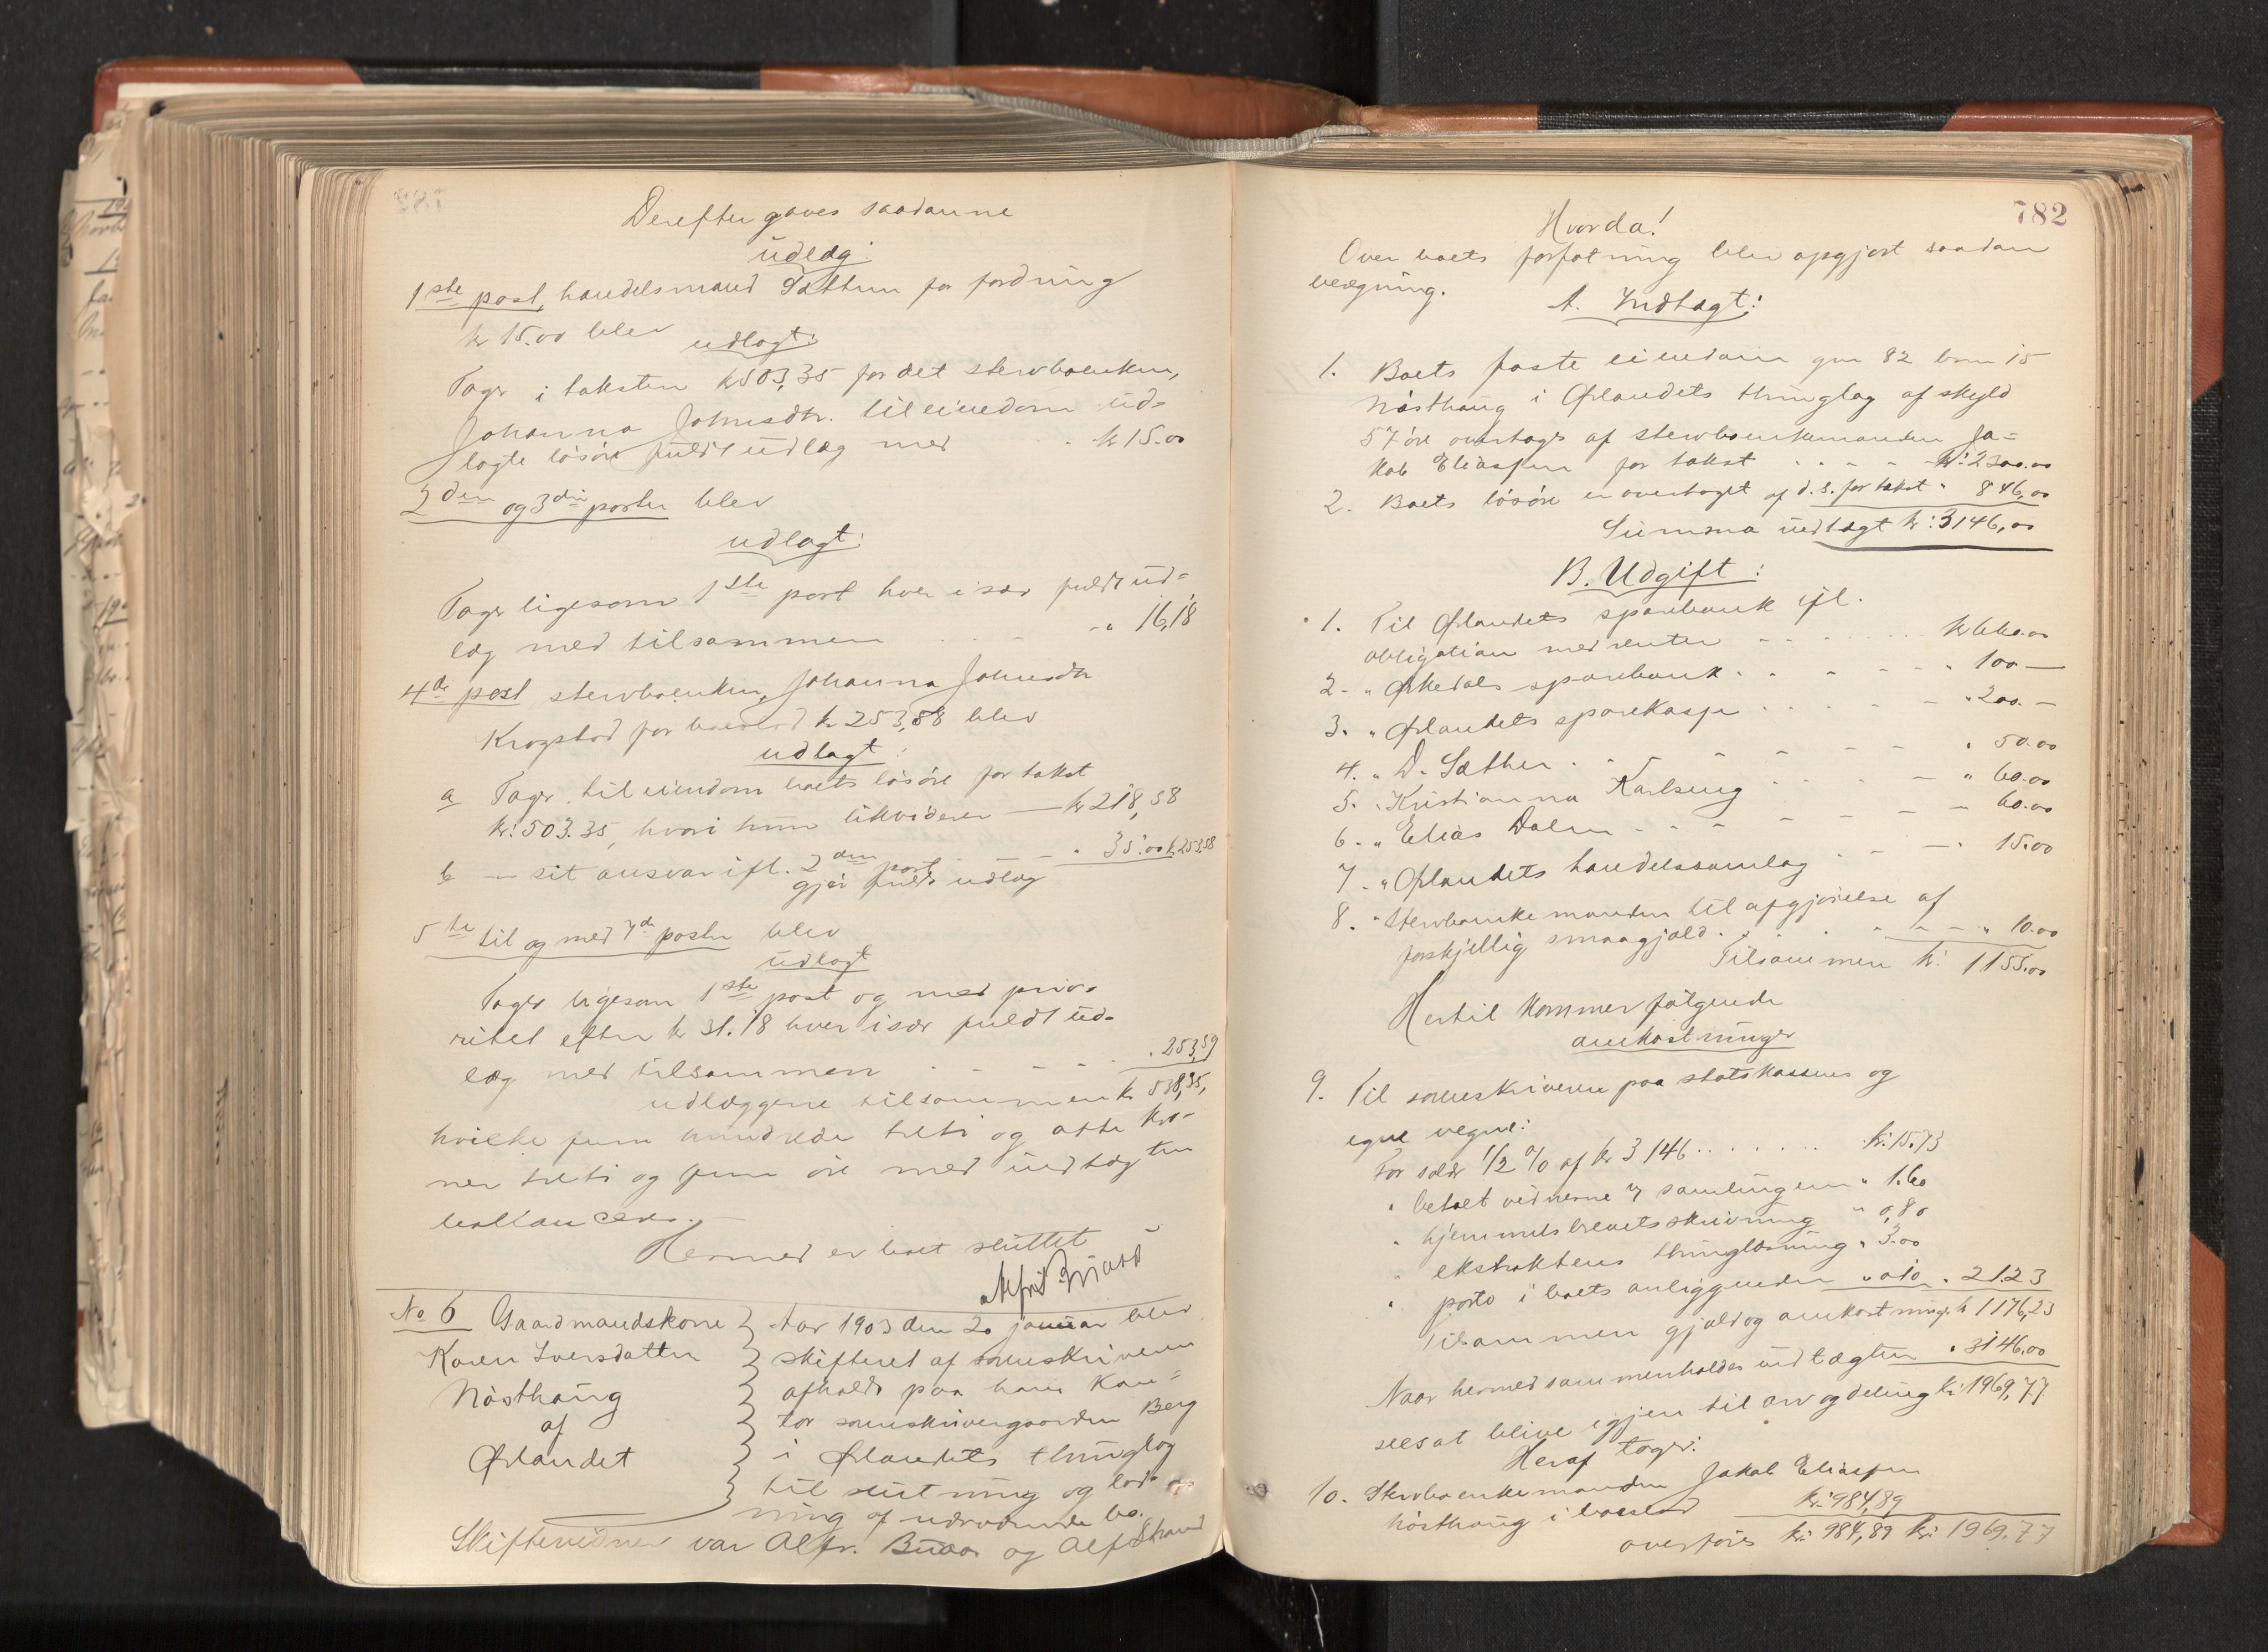 Derefter gaves saadanne
udlæg:
1ste post, handelsmand Sæther for fordring
kr 15.00 blev
udlagt:
Tager i taksten k 503,35 for det stervboenken,
Johanna Johnsdtr. til eiendom ud-
lagte løsøre fuldt udlæg med . kr 15.00
2den og 3die poster blev
udlagt:
Tager ligesom 1ste post hver især fuldt ud-
læg med tilsammen - - " 16,18
4de post stervboenken, Johanna Johnsdtr
Krogstad for boeslod kr 253,58 blev
udlagt:
a Tager til eiendom boets løsøre for takst
kr: 503.35, hvori hun likviderer — kr 218,58
b — sit ansvar ifl. 2den post - - - " 35.00 k. 253,58
gjør fuldt udlæg
5te til og med 7de poster blev
udlagt
Tager ligesom 1ste post og med prio-
ritet efter kr 31.18 hver især fuldt ud-
læg med tilsammen - - - - . 253,59
udlæggene tilsammen kr 538,35,
hvilke fem hundrede treti og otte kro-
ner treti og fem øre med indtægten
ballancerer.—
Hermed er boet sluttet
No 6 Gaardmandskone } Aar 1903 den 20 januar blev
Karen Iversdatter } skifteret af sorenskriveren
Nøsthaug } afholdt paa hans kon-
af } tor sorenskrivergaarden Berg
Ørlandet } i Ørlandets thinglag
} til slutning og lod-
ning af nedrørende bo.
Skiftevidner var Alfr. Buaas og Alf Strand
782
Hvorda!
Over boets forfatning blev opgjort saadan
beregning.
A. Indtægt:
1. Boets faste eiendom gno 82 bno 15
Nøsthaug i Ørlandets thinglag af skyld
57 øre overtages af stervboenkemanden Ja-
kob Eliassen for takst - - - - kr: 2300.00
2. Boets løsøre er overtaget af d. s. for takst " 846,00
Summa indtægt kr: 3146,00
B. Udgift:
1. Til Ørlandets sparebank ifl.
obligation med renter - - - - kr 660.00
2 - " Ørkedals sparebank - - - - " 100 —
3. " Ørlandets sparekasse - - - - " 200. —
4. " D. Sæther - - - - " 50.00
5. " Kristianna Karlseng - - - " 60.00
6 - " Elias Dalen - - - - - 60.00
7 - " Ørlandets handelssamlag - - - " 15.00
8. " Stervboenkemanden til afgjørelse af
forskjellig smaagjæld - - - - " 10.00
Tilsammen kr: 1155.00
Hertil kommer følgende
omkostninger
9. Til sorenskriveren paa statskassens og
egne vegne:
For solær 1/2 % af kr 3146 . . . . . . . kr: 15.73
" betalt vidnerne i samlingen " 1.60
" hjemmelsbrevets skrivning " 0,80
" ekstraktens thinglæsning " 3.00
" porto i boets anliggender " 0 10 " 21.23
Tilsammen gjæld og omkostninger kr 1176,23
Naar hermed sammenholdes indtægten " 3146.00
sees at blive igjen til arv og deling kr: 1969,77
Heraf tager:
10. Stervboenkemanden Jakob Eliassen
Nøsthaug i boeslod kr: 984,89
overføres kr: 984,89 kr: 1969,77